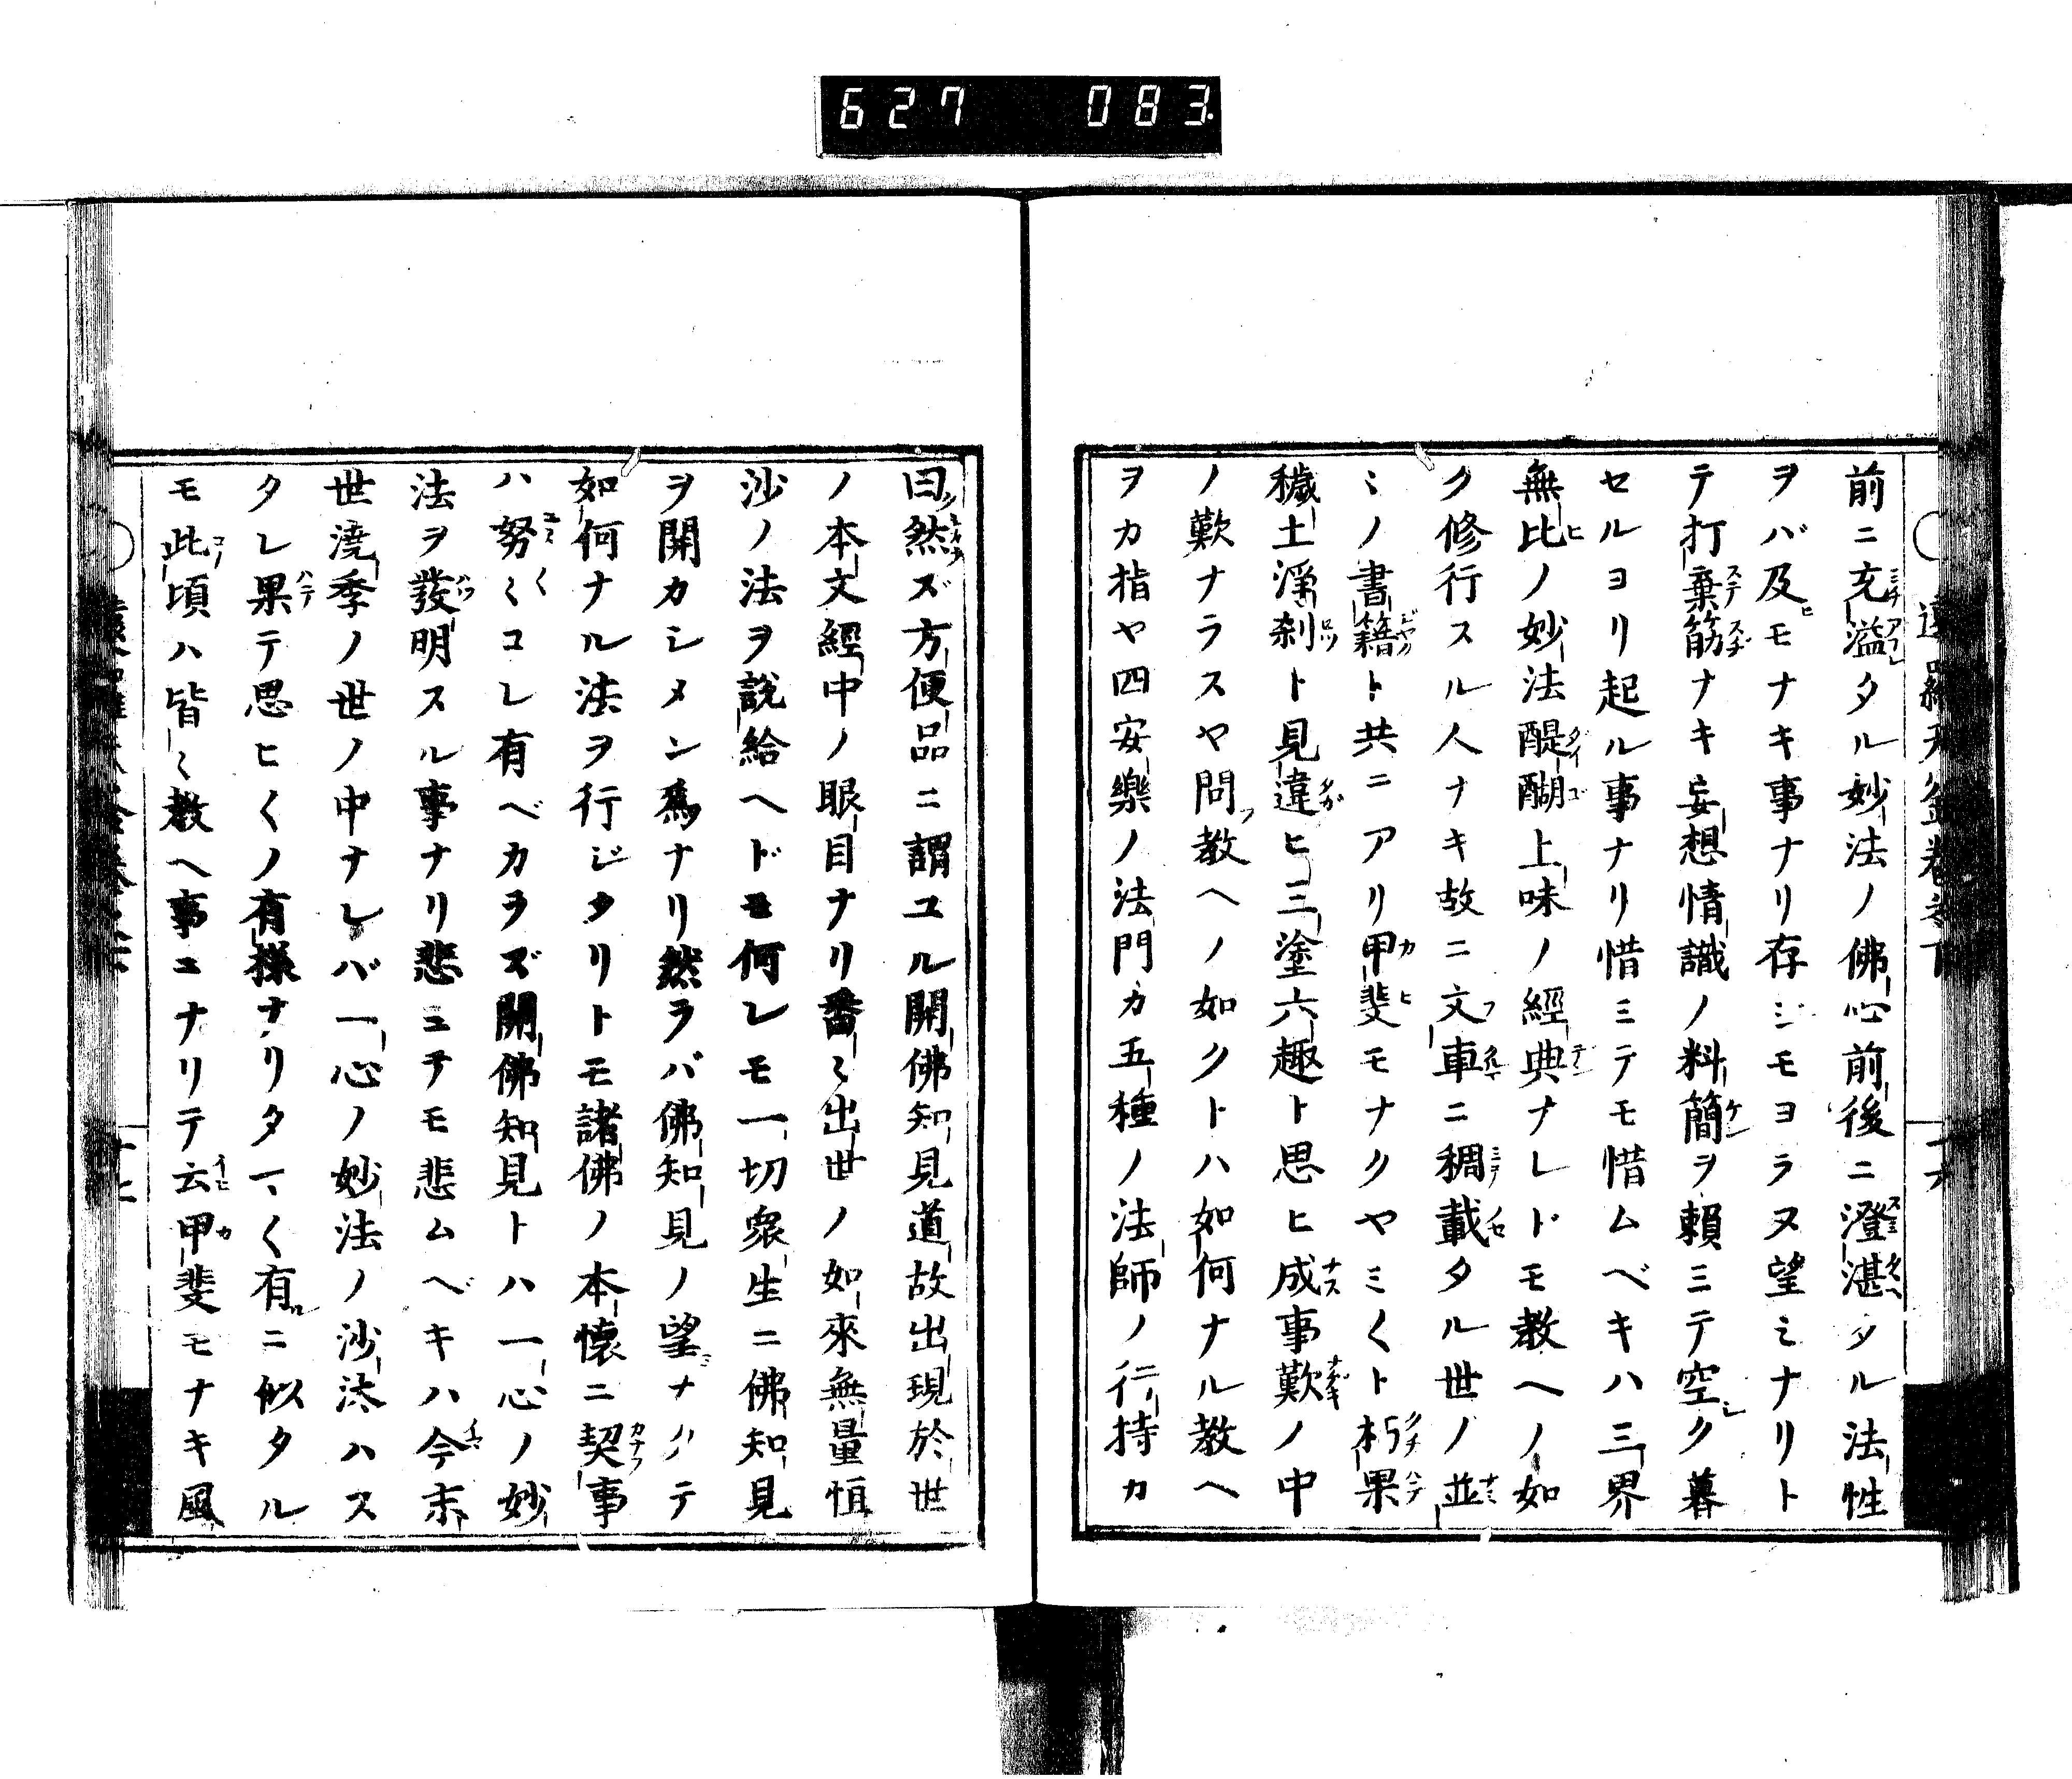 627 083
前ニ充溢タル妙法ノ佛心前後ニ澄湛タル法性
ヲバ及モナキ事ナリ存ジモヨラヌ望ミナリト
テ打棄筋ナキ妄想情識ノ料簡ヲ頼ミテ空ク暮
セルヨリ起ル事ナリ惜ミテモ惜ムベキハ三界
無比ノ妙法醍醐上味ノ經典ナレドモ教ヘノ如
ク修行スル人ナキ故ニ文車ニ稠載タル世ノ並
ミノ書籍ト共ニアリ甲斐モナクヤミ〱ト朽果
穢土淨刹ト見違ヒ三塗六趣ト思ヒ成事歎ノ中
ノ歎ナラスヤ問教ヘノ如クトハ如何ナル教ヘ
ヲカ指ヤ四安樂ノ法門カ五種ノ法師ノ行持カ
曰然ズ方便品ニ謂ユル開佛知見道故出現於世
ノ本文經中ノ眼目ナリ番〻出世ノ如來無量恒
沙ノ法ヲ說給ヘドモ何レモ一切衆生ニ佛知見
ヲ開カシメン爲ナリ然ラバ佛知見ノ望ナクテ
如何ナル法ヲ行ジタリトモ諸佛ノ本懐ニ契事
ハ努〻コレ有ベカラズ開佛知見トハ一心ノ妙
法ヲ發明スル事ナリ悲ニテモ悲ムベキハ今末
世澆季ノ世ノ中ナレバ一心ノ妙法ノ沙汰ハス
タレ果テ思ヒ〱ノ有樣ナリタマ〱有ニ似タル
モ此頃ハ皆〻教ヘ事ニナリテ云甲斐モナキ風